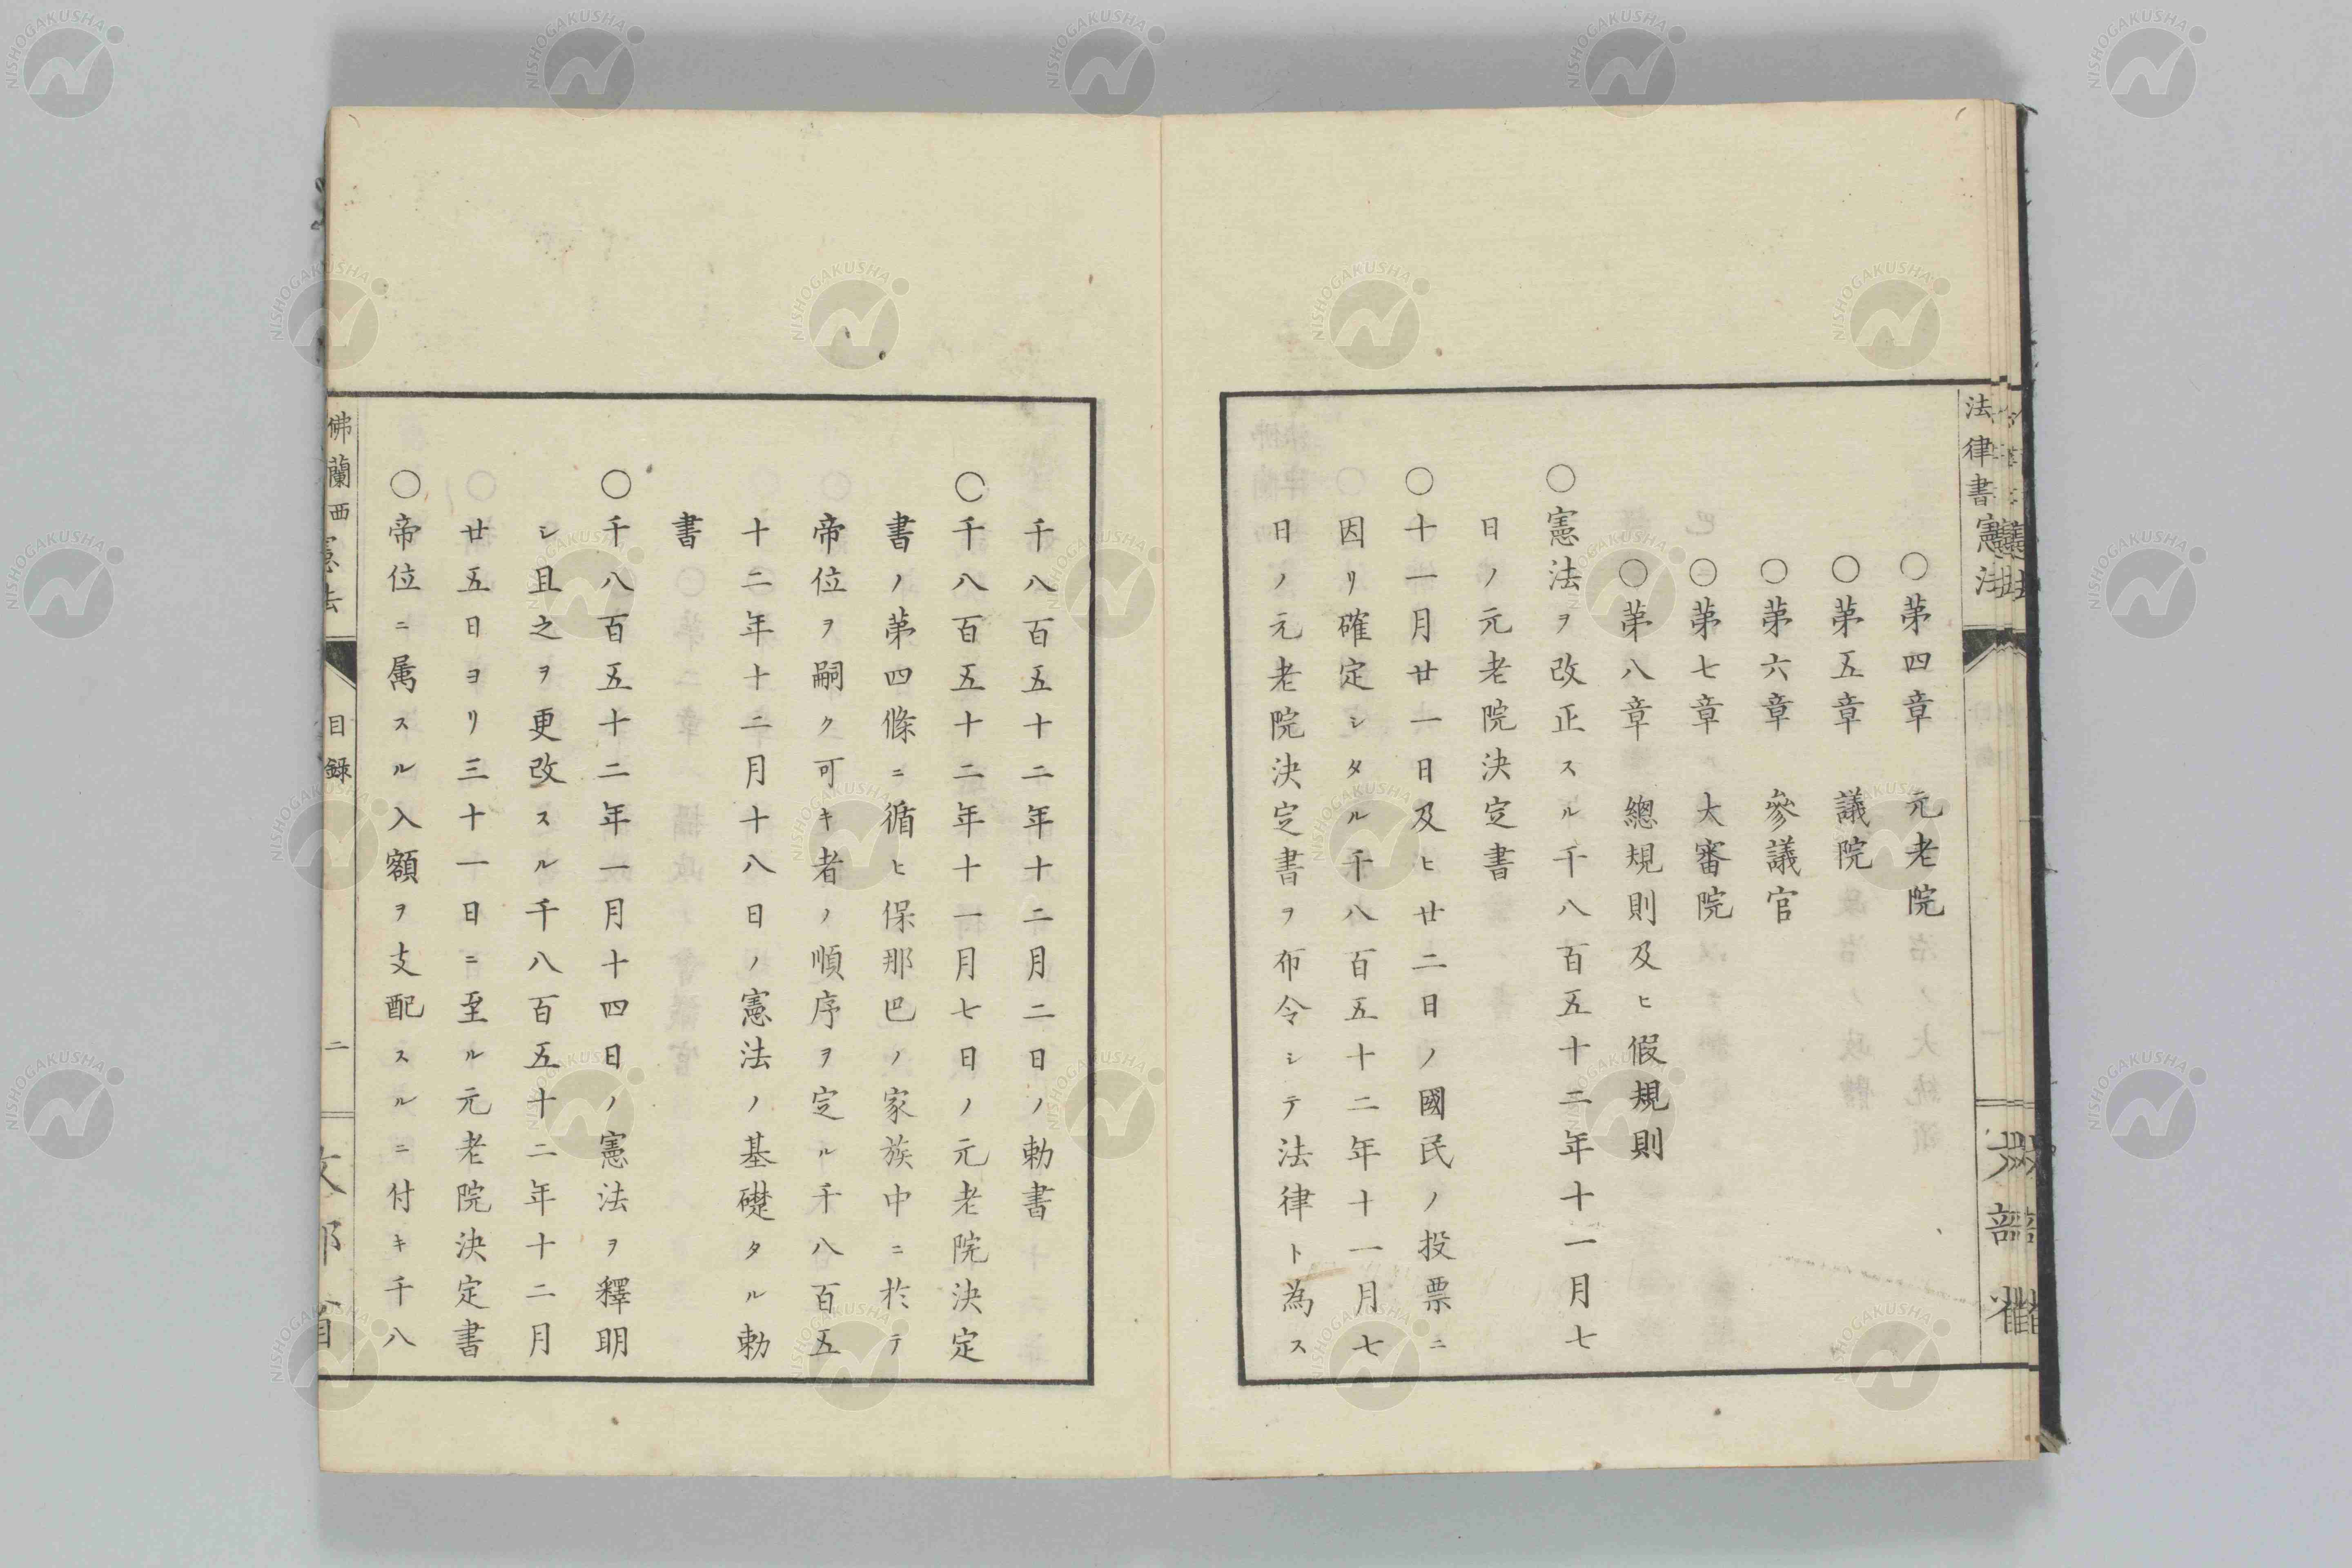 法律書 憲法
○第四章 元老院
○第五章 議院
○第六章 參議官
○第七章 大審院
○第八章 總規則及ヒ假規則
○憲法ヲ改正スル千八百五十二年十一月七
日ノ元老院決定書
○十一月廿一日及ヒ廿二日ノ國民ノ投票ニ
因リ確定シタル千八百五十二年十一月七
日ノ元老院決定書ヲ布令シテ法律ト為ス
千八百五十二年十二月二日ノ勅書
○千八百五十二年十一月七日ノ元老院決定
書ノ第四條ニ循ヒ保那巴ノ家族中ニ於テ
帝位ヲ嗣ク可キ者ノ順序ヲ定ル千八百五
十二年十二月十八日ノ憲法ノ基礎タル勅
書
○千八百五十二年一月十四日ノ憲法ヲ釋明
シ且之ヲ更改スル千八百五十二年十二月
廿五日ヨリ三十一日ニ至ル元老院決定書
○帝位ニ属スル入額ヲ支配スルニ付キ千八
佛蘭西憲法 目録 二 文部省
NISHOGAKUSHA